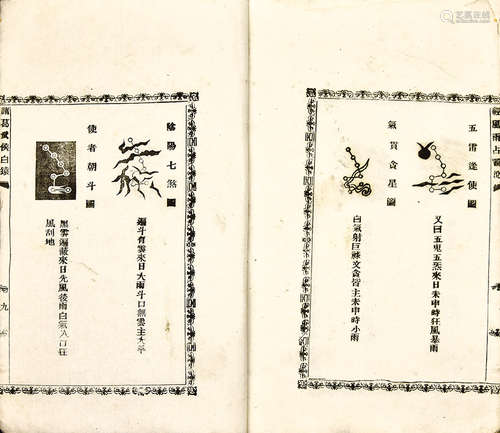 五雷逢使圖
又曰五鬼五煞來日未申時狂風暴雨
氣貫含星圖
白氣射巨祿文貪皆主未申時小雨
陰陽七煞圖
遍斗有雲來日大雨斗口無雲主大旱
使者朝斗圖
黑雲遍蔽來日先風後雨白氣入口狂
風刮地
諸葛武侯白猿
九
風雨占